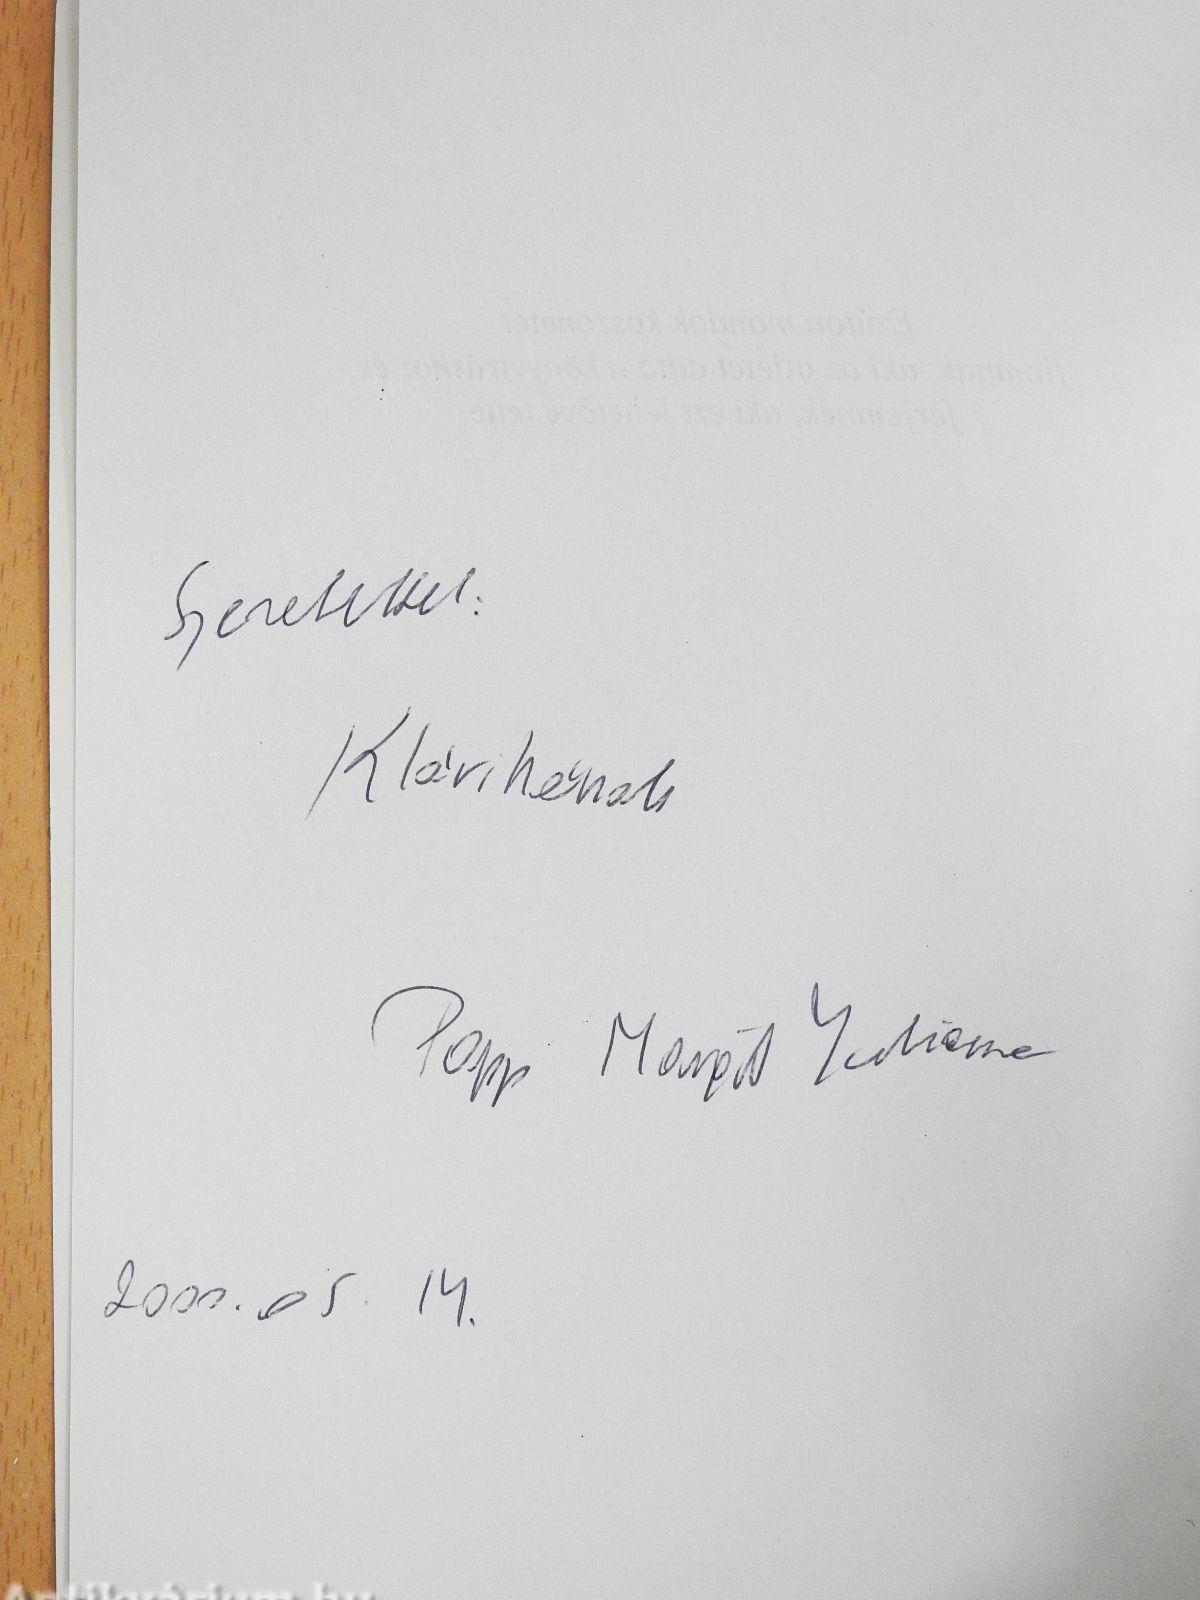 Ezúton mondok köszönetet
fiamnak, aki az ötletet adta a könyvíráshoz és
férjemnek, aki ezt lehetővé tette.
Szeretettel:
Klárikának
Papp Margit Julianna
2000. 05. 14.
Antikvárium.hu